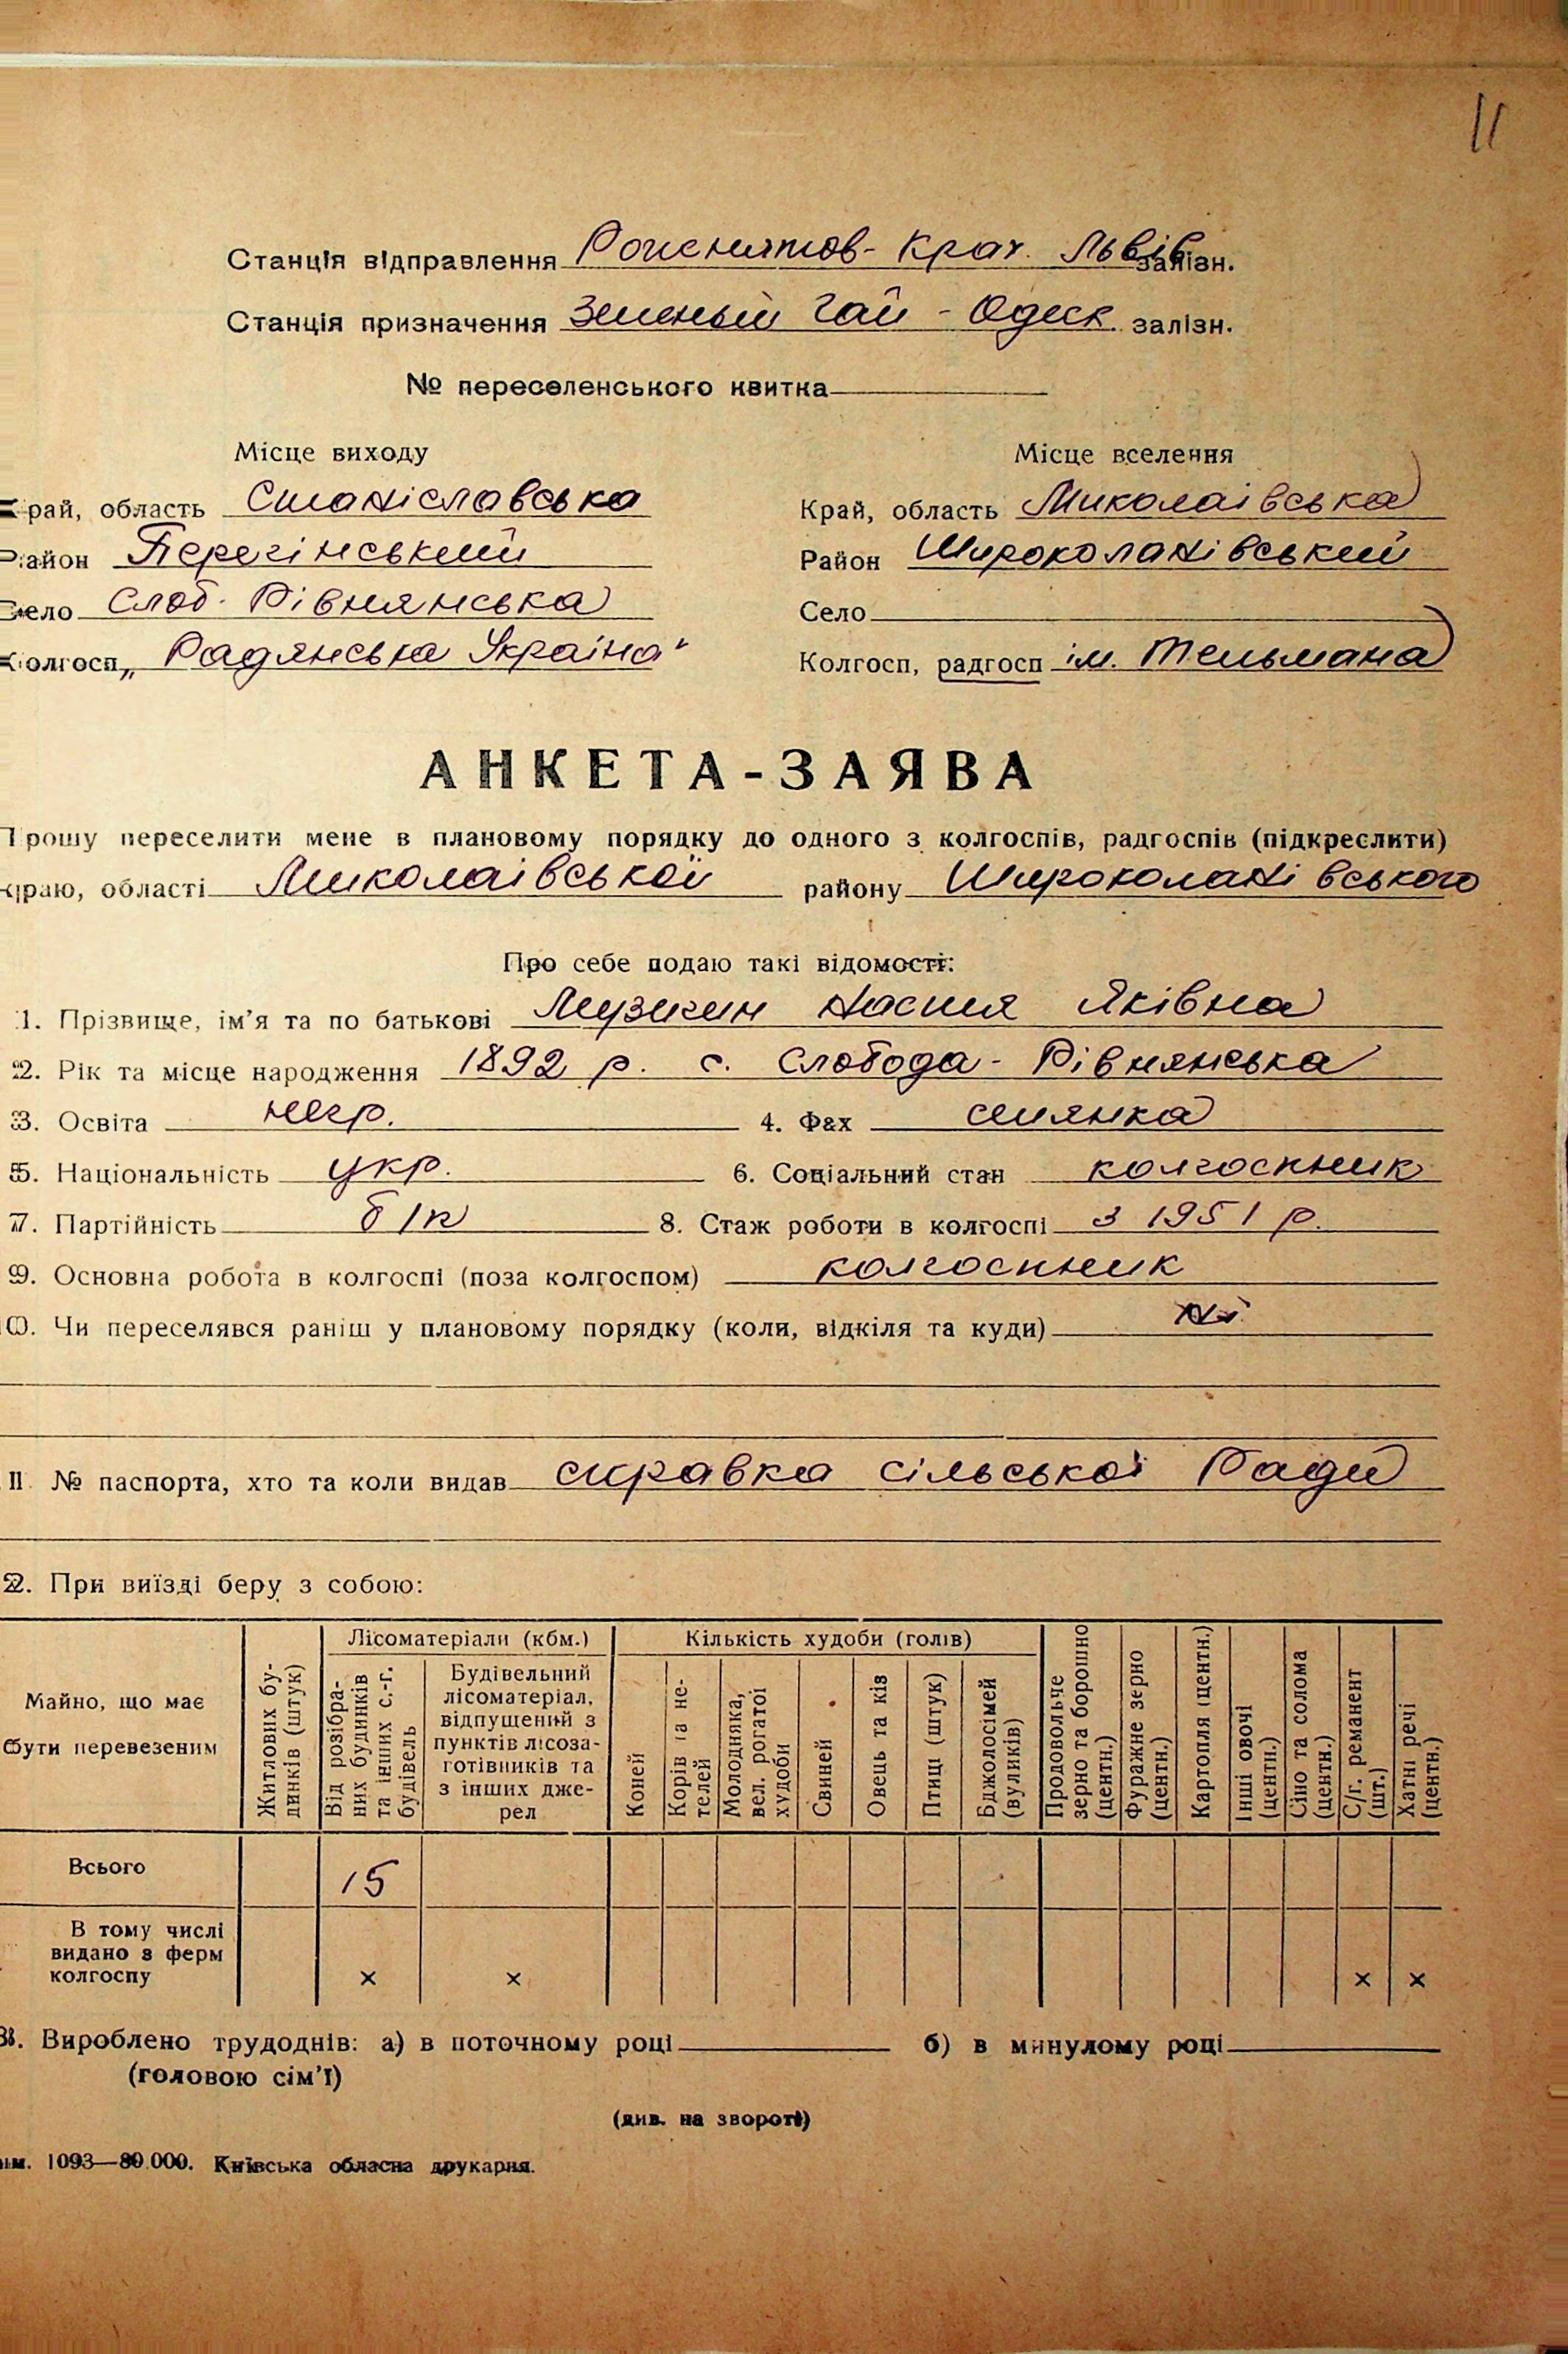 11
Станція відправлення Рожнятов- Крах. Львів залізн.
Станція призначення Зеленый Гай - Одеск. залізн.
№ переселенського квитка
Місце виходу
Місце вселення
Край, область Станіславська
Край, область Миколаївська
Район Перегінський
Район Широколанівський
Село Слоб. Рівнянська
Село
Колгосп „Радянська Україна"
Колгосп, радгосп ім. Тельмана
АНКЕТА-ЗАЯВА
Прошу переселити мене в плановому порядку до одного з колгоспів, радгоспів (підкреслити)
краю, області Миколаївської району Широколанівського
Про себе подаю такі відомості:
1. Прізвище, ім'я та по батькові Настя Яківна
2. Рік та місце народження 1892 р. с. Слобода- Рівнянська
3. Освіта негр. 4. Фах селянка
5. Національність укр. 6. Соціальний стан колгоспник
7. Партійність б/п 8. Стаж роботи в колгоспі з 1951 р.
9. Основна робота в колгоспі (поза колгоспом) колгоспник
10. Чи переселявся раніш у плановому порядку (коли, відкіля та куди) ні
11. № паспорта, хто та коли видав справка сільської Ради
2. При виїзді беру з собою:
Майно, що має бути перевезеним
Житлових будинків (штук)
Лісоматеріали (кбм.)
Від розібраних будинків та інших с.-г. будівель
Будівельний лісоматеріал, відпущений з пунктів лісозаготівників та з інших джерел
Кількість худоби (голів)
Коней
Корів та нетелей
Молодняка, вел. рогатої худоби
Свиней
Овець та ків
Птиці (штук)
Бджолосімей (вуликів)
Продовольче зерно та борошно (центн.)
Фуражне зерно (центн.)
Картопля (центн.)
Інші овочі (центн.)
Сіно та солома (центн.)
С/г. реманент (шт.)
Хатні речі (центн.)
Всього 15
В тому числі видано з ферм колгоспу × × × ×
3. Вироблено трудоднів: а) в поточному році б) в минулому році
(головою сім'ї)
(див. на звороті)
1093—80.000. Київська обласна друкарня.